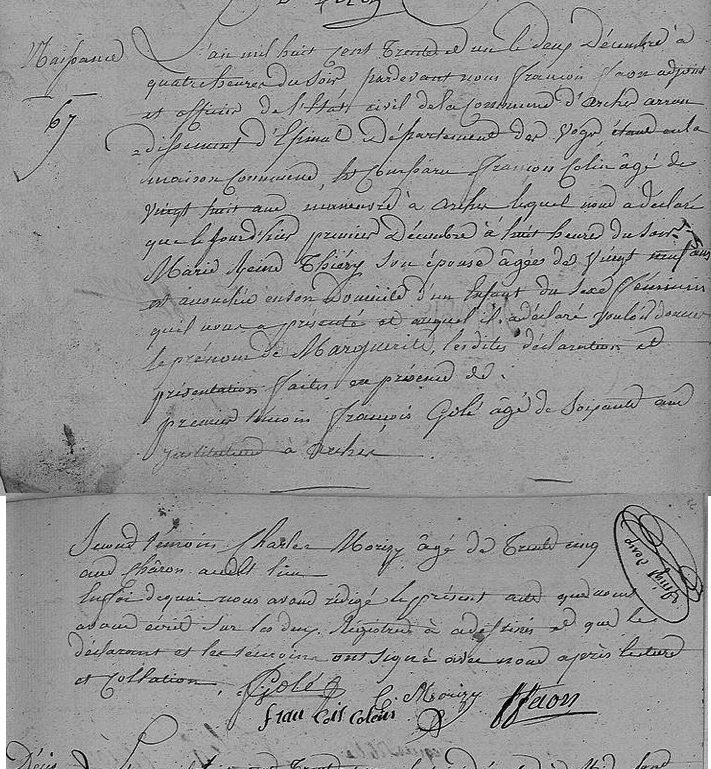 Naissance
67
L'an mil huit cent trente et un le deux Décembre à
quatre heures du soir pardevant nous françois faon adjoint
et officier de l'état civil de la Commune d'Arches arron
dissement d'Epinal département des Vosges étant en la
maison Commune, est Comparu françois Colin âgé de
vingt huit ans manœuvre à Arches lequel nous a déclaré
que le jour d'hier premier Décembre à huit heures du soir
Marie Reine Thiéry son épouse âgée de vingt neuf ans
est accouchée en son domicile d'un Enfant du sexe féminin
qu'il nous a présenté et auquel il a déclaré vouloir donner
le prénom de Marguerite, lesdites déclaration et
présentation faites en présence de
premier témoin françois Golé âgé de soixante ans
instituteur à Arches
Second témoin Charles Morizy âgé de trente cinq
ans Charon audit lieu
En foi de quoi nous avons rédigé le présent acte que nous
avons écrit sur les deux Registres à ce destinés et que le
déclarant et les témoins ont signé avec nous après lecture
et Collation.
Golé C. Morizy ffaon
fran Cois Colein
Décès